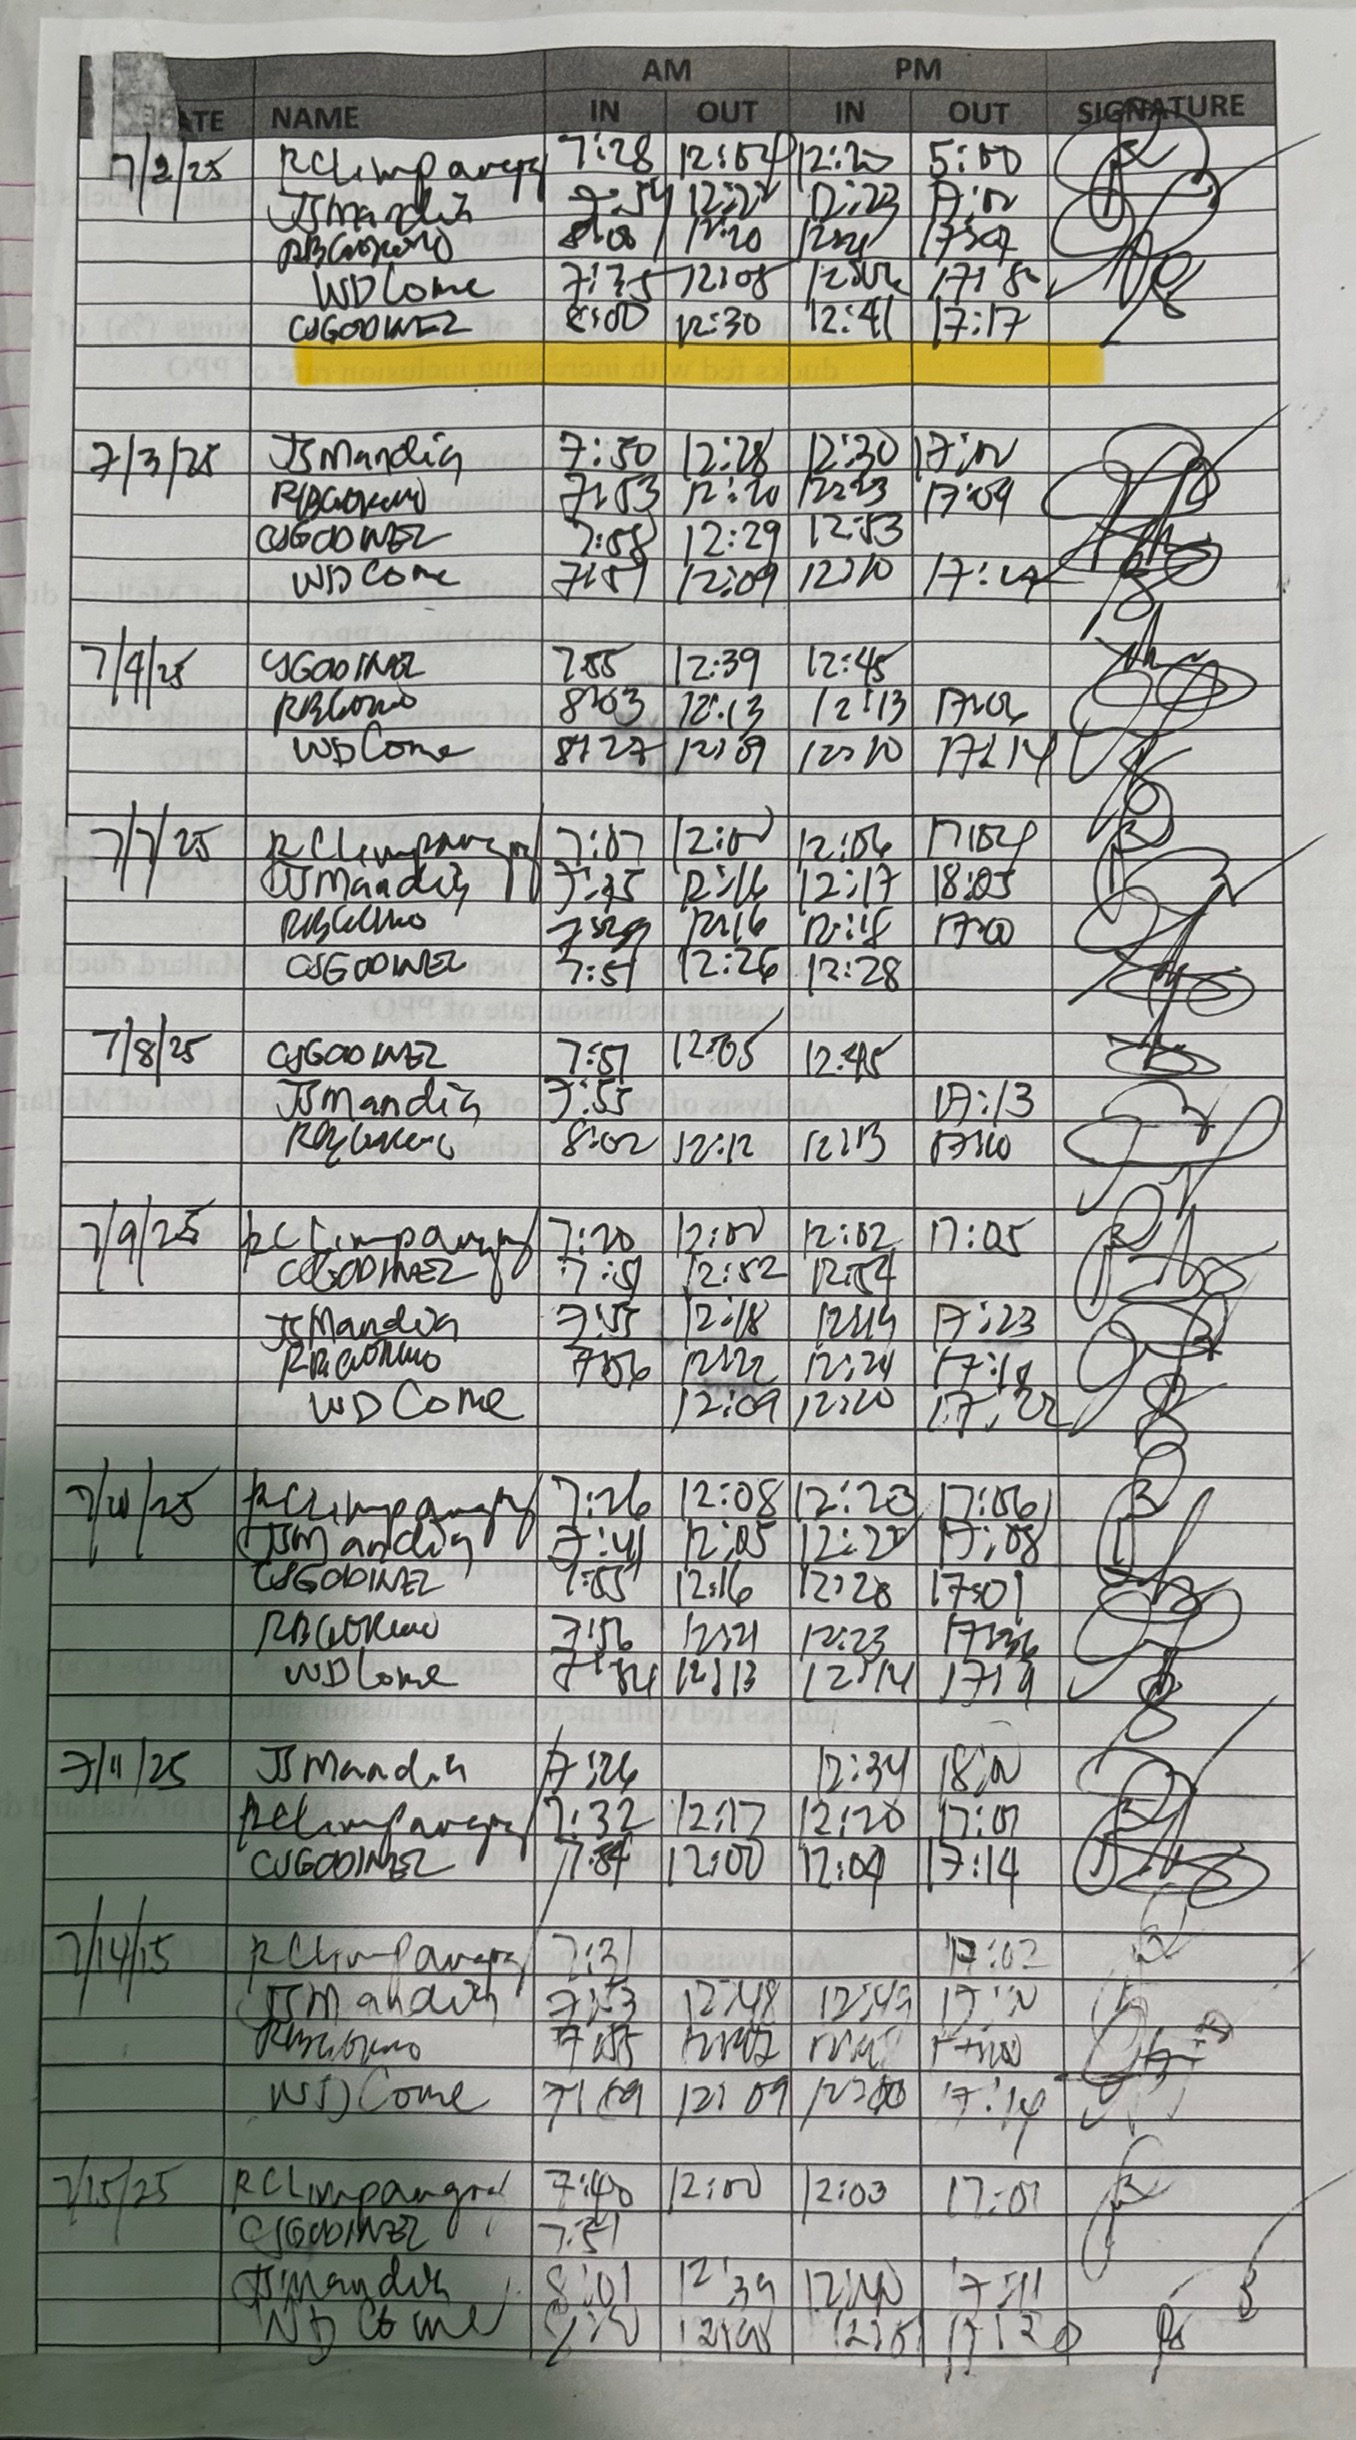 AM PM
ATE NAME IN OUT IN OUT SIGNATURE
7/2/25 RCLimpangog 7:28 12:04 12:20 5:00
JSMandia 7:54 12:22 12:23 17:00
8:00 12:20 12:21
WDCome 7:35 12:08
CJGODINEZ 8:00 12:30 12:41 17:17
7/3/25 JSMandia 7:50 12:28 12:30 17:00
7:53 12:20 12:23 17:09
CJGODINEZ 7:58 12:29 12:53
WDCome 7:59 12:09 12:10
7/4/25 CJGODINEZ 7:55 12:39 12:45
8:03 12:13 12:13
WDCome 8:27 12:09 12:10 17:14
7/7/25 RCLimpangog 7:07 12:00 12:06
JSMandia 7:35 12:16 12:17 18:05
12:16 12:18 17:00
CJGODINEZ 7:51 12:26 12:28
7/8/25 CJGODINEZ 7:51 12:05 12:45
JSMandia 7:55 17:13
8:02 12:12 12:13 17:10
7/9/25 RCLimpangog 7:20 12:00 12:02 17:05
CJGODINEZ 7:51 12:52 12:54
JSMandia 7:55 12:18 12:19 17:23
7:56 12:22 12:24 17:18
WDCome 12:09 12:20 17:22
7/10/25 RCLimpangog 7:26 12:08 12:23 17:06
JSMandia 7:41 12:05 12:22 17:08
CJGODINEZ 7:55 12:16 12:28 17:01
7:56 12:21 12:23 17:36
WDCome 12:13 12:14 17:19
7/11/25 JSMandia 7:26 12:34 18:00
RCLimpangog 7:32 12:17 12:20 17:01
CJGODINEZ 7:54 12:00 12:04 17:14
7/14/15 RCLimpangog 7:31 17:02
JSMandia 7:53 12:48 12:49
7:55
WDCome 7:59 12:09 17:14
7/15/25 RCLimpangog 7:40 12:00 12:03 17:01
CJGODINEZ 7:51
JSMandia 8:01 12:39 12:40 17:11
WDCome 17:20